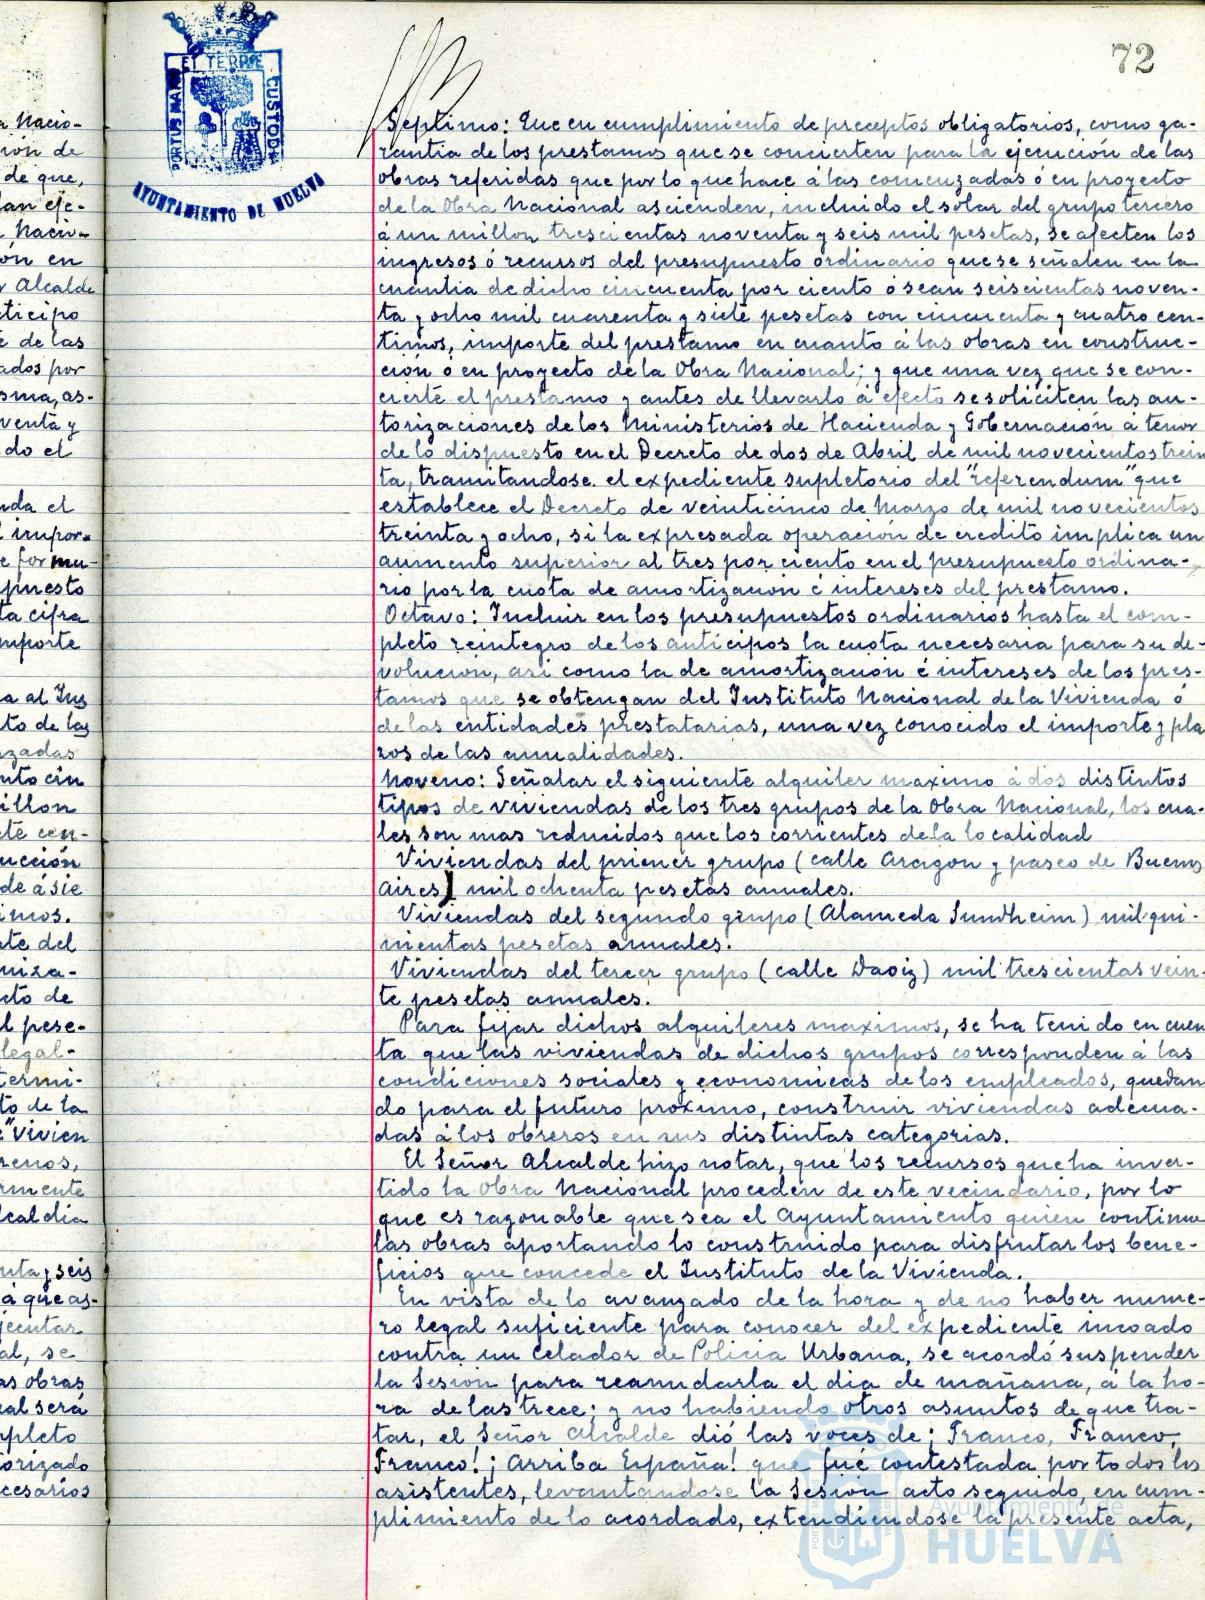 72
PORTUS MARIS ET TERRE CUSTODIA
AYUNTAMIENTO DE HUELVA
a Nacio-
ción de
de que,
an eje-
Nacio-
ón en
r Alcalde
ticipo
e de las
ados por
sma, as-
venta y
do el
nda el
l impor-
e formu-
puesto
ta cifra
mporte
a al Ins
to de las
nzadas
nto cin
illon
ete cen-
ucción
de á sie
imos.
te del
niza-
cto de
l pese-
legal-
termi-
to de la
e "vivien
renos,
rmente
lcaldia
nta y seis
á que as-
jecutar
al, se
as obras
ual será
pleto
orizado
cesarios
Septimo: Que en cumplimiento de preceptos obligatorios, como ga-
rantia de los prestamos que se concierten para la ejecución de las
obras referidas que por lo que hace á las comenzadas ó en proyecto
de la Obra Nacional ascienden, incluido el solar del grupo tercero
á un millon trescientas noventa y seis mil pesetas, se afecten los
ingresos ó recursos del presupuesto ordinario que se señalen en la
cuantia de dicho cincuenta por ciento ó sean seiscientas noven-
ta y ocho mil cuarenta y siete pesetas con cincuenta y cuatro cen-
timos, importe del prestamo en cuanto á las obras en construc-
ción ó en proyecto de la Obra Nacional; y que una vez que se con-
cierte el prestamo y antes de llevarlo á efecto se soliciten las au-
torizaciones de los Ministerios de Hacienda y Gobernación á tenor
de lo dispuesto en el Decreto de dos de Abril de mil novecientos trein
ta, tramitandose. el expediente supletorio del "referendum" que
establece el Decreto de veinticinco de Marzo de mil novecientos
treinta y ocho, si la expresada operación de credito implica un
aumento superior al tres por ciento en el presupuesto ordina-
rio por la cuota de amortización é intereses del prestamo.
Octavo: Incluir en los presupuestos ordinarios hasta el com-
pleto reintegro de los anticipos la cuota necesaria para su de-
volucion, asi como la de amortización é intereses de los pres-
tamos que se obtengan del Instituto Nacional de la Vivienda ó
de las entidades prestatarias, una vez conocido el importe y pla
zos de las anualidades.
Noveno: Señalar el siguiente alquiler maximo á dos distintos
tipos de viviendas de los tres grupos de la Obra Nacional, los cua-
les son mas reducidos que los corrientes de la localidad
Viviendas del primer grupo (calle Aragon y paseo de Buenos
Aires) mil ochenta pesetas anuales.
Viviendas del segundo grupo (Alameda Sundheim) mil qui-
nientas pesetas anuales.
Viviendas del tercer grupo (calle Daoiz) mil trescientas vein-
te pesetas anuales.
Para fijar dichos alquileres maximos, se ha tenido en cuen
ta que las viviendas de dichos grupos corresponden á las
condiciones sociales y economicas de los empleados, quedan
do para el futuro proximo, construir viviendas adecua-
das á los obreros en sus distintas categorias.
El Señor Alcalde hizo notar, que los recursos que ha inver-
tido la Obra Nacional proceden de este vecindario, por lo
que es razonable que sea el Ayuntamiento quien continue
las obras aportando lo construido para disfrutar los bene-
ficios que concede el Instituto de la Vivienda.
En vista de lo avanzado de la hora y de no haber nume-
ro legal suficiente para conocer del expediente incoado
contra un Celador de Policia Urbana, se acordó suspender
la Sesion para reanudarla el dia de mañana, á la ho-
ra de las trece; y no habiendo otros asuntos de que tra-
tar, el Señor Alcalde dió las voces de ¡Franco, Franco,
Franco! ¡Arriba España! que fué contestada por todos los
asistentes, levantandose la Sesion acto seguido, en cum-
plimiento de lo acordado, extendiendose la presente acta,
Ayuntamiento de
HUELVA